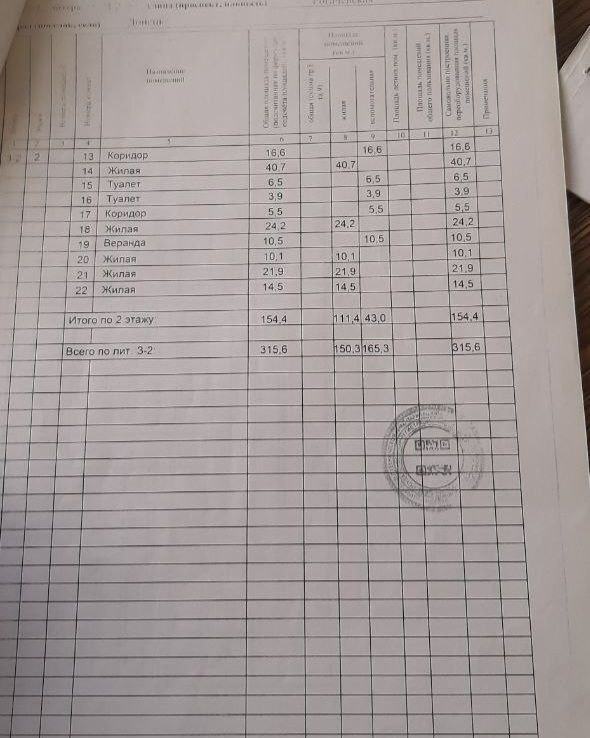 улица (проспект, площадь)
Донецк
Название помещений
Площадь помещений (кв.м.)
жилая
вспомогательная
Площадь помещений общего пользования (кв.м.)
Самовольно построенная, переоборудованная площадь помещений (кв.м.)
Примечания
1 2 3 4 5 6 7 8 9 10 11 12 13
2 13 Коридор 16,6 16,6 16,6
14 Жилая 40,7 40,7 40,7
15 Туалет 6,5 6,5 6,5
16 Туалет 3,9 3,9 3,9
17 Коридор 5,5 5,5 5,5
18 Жилая 24,2 24,2 24,2
19 Веранда 10,5 10,5 10,5
20 Жилая 10,1 10,1 10,1
21 Жилая 21,9 21,9 21,9
22 Жилая 14,5 14,5 14,5
Итого по 2 этажу: 154,4 111,4 43,0 154,4
Всего по лит. З-2: 315,6 150,3 165,3 315,6